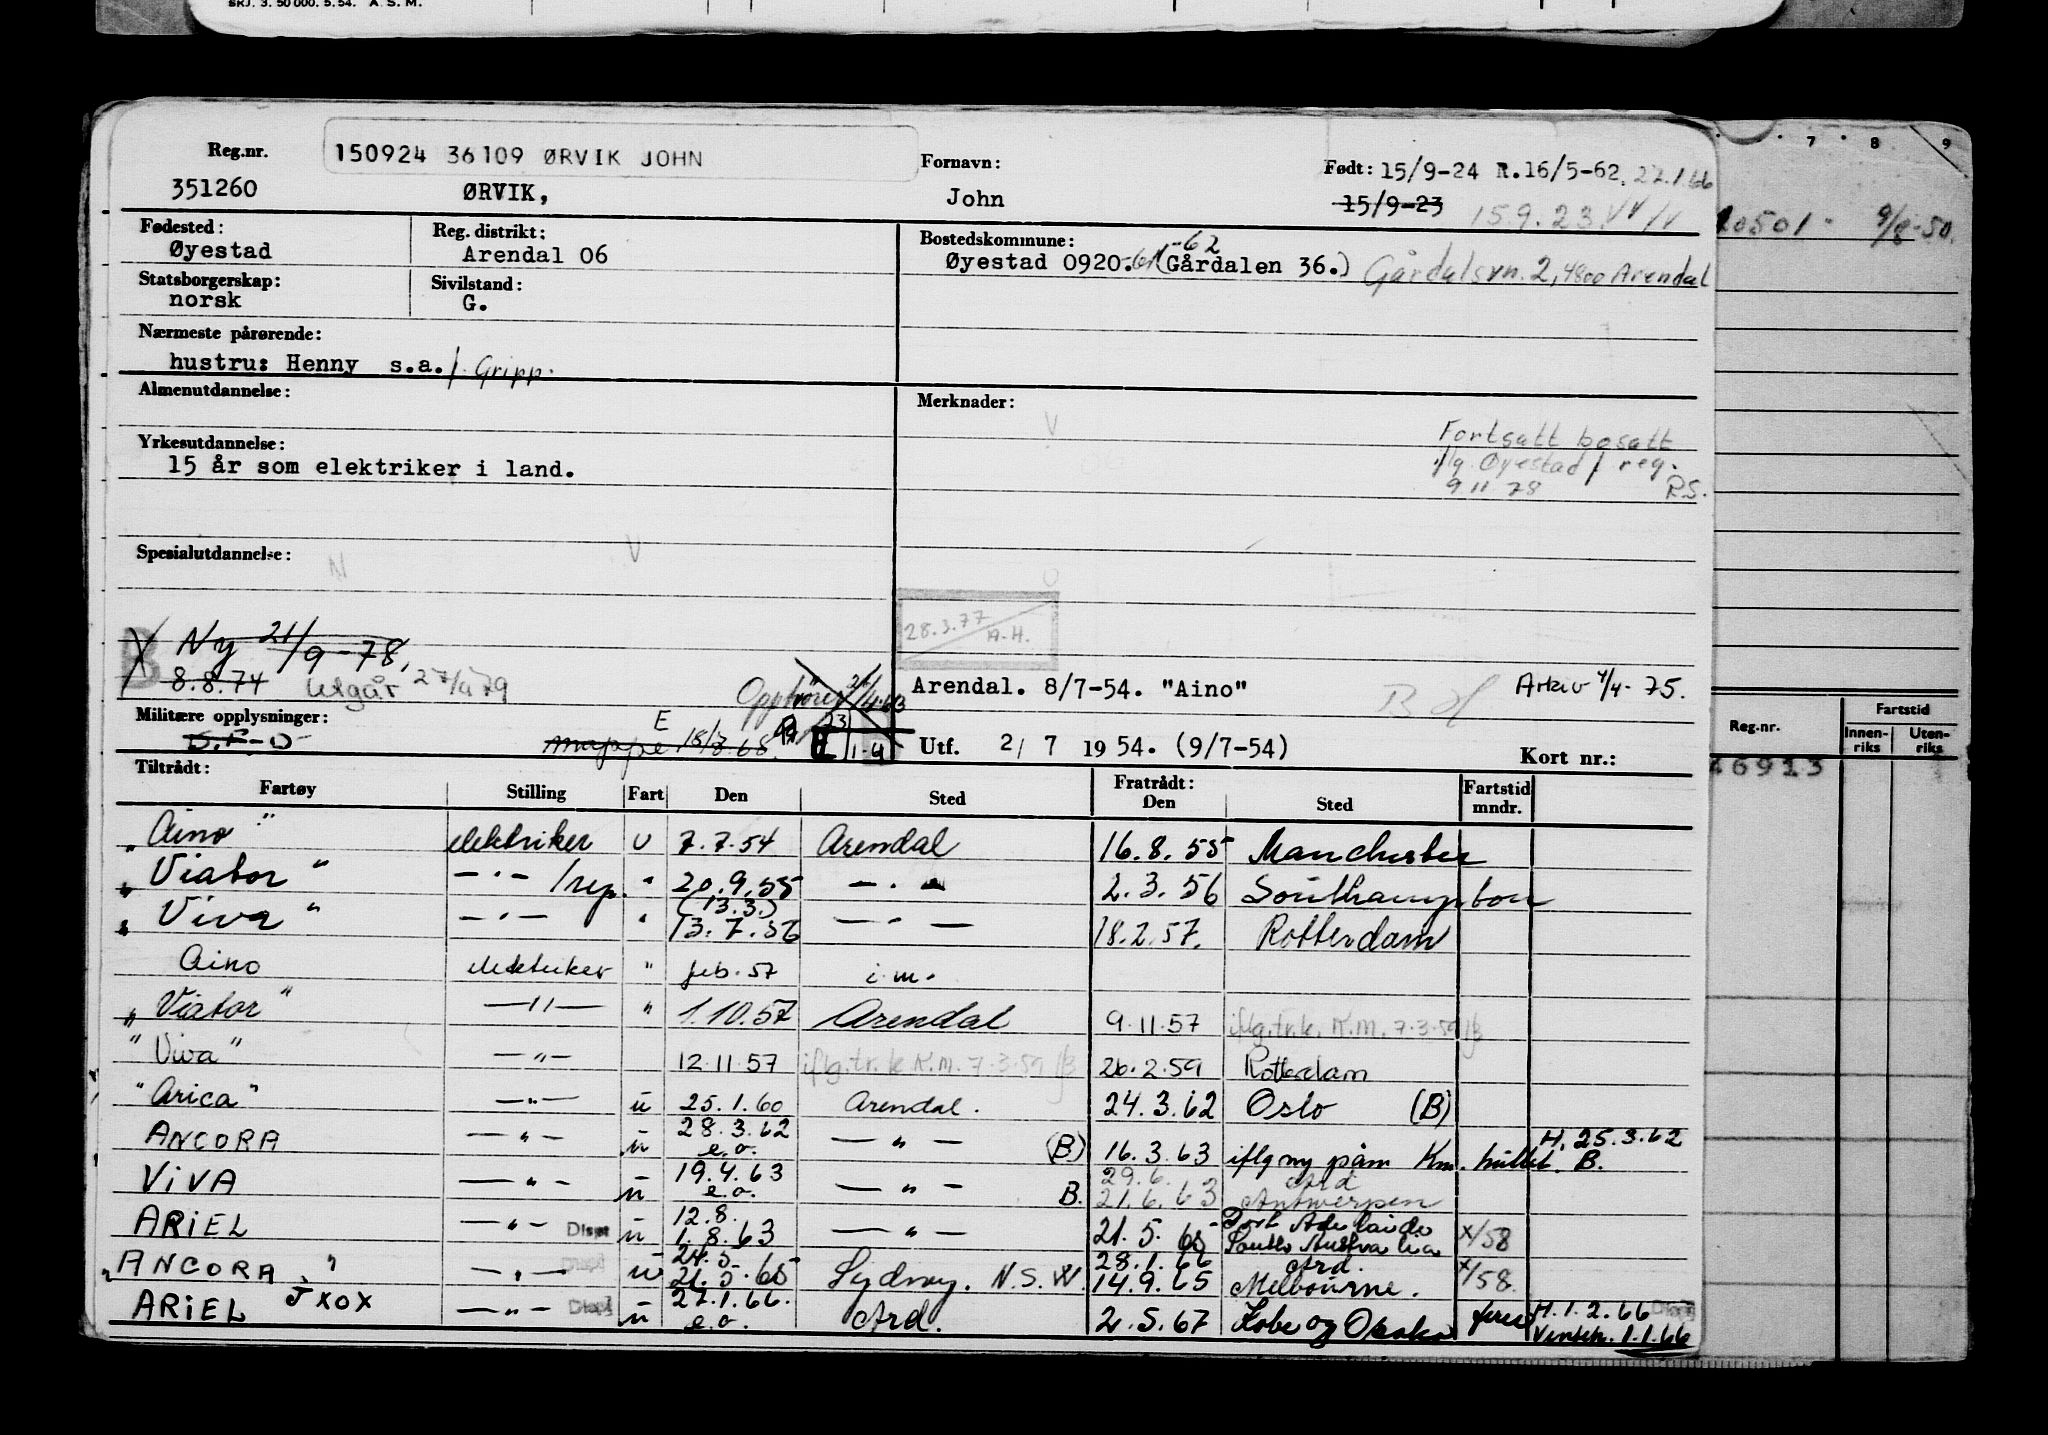 SRJ. 3. 50 000. 5. 54. A. S. M.
7 8 9
Reg.nr. 150924 36109 ØRVIK JOHN Fornavn: Født: 15/9-24 R.16/5-62, 27.1.66
351260 ØRVIK, John 15/9-23 15.9.23
Fødested: Reg. distrikt: Bostedskommune: -62
Øyestad Arendal 06 Øyestad 0920. (Gårdalen 36.) Gårdalsvn. 2, 4800 Arendal
9/8-50.
Statsborgerskap: Sivilstand:
norsk G.
Nærmeste pårørende:
hustru: Henny s.a. Gripp.
Almenutdannelse: Merknader:
Fortsatt bosatt
Yrkesutdannelse: iflg. Øyestad f. reg.
15 år som elektriker i land. 9 11 78 R.S.
Spesialutdannelse:
28.3.77
A.H.
B Ny 21/9-78,
8.8.74 Utgår 27/9 79
Arendal. 8/7-54. "Aino" Arkiv 4/4-75.
Militære opplysninger: E
mappe 18/3.68 1-4 Utf. 2/ 7 1954. (9/7-54) Kort nr.:
Reg.nr. Fartstid
Innen-riks Uten-riks
26913
Tiltrådt: Fratrådt:
Fartøy Stilling Fart Den Sted Den Sted Fartstid mndr.
"Aino" elektriker U 7.7.54 Arendal 16.8.55 Manchester
"Viator" — " — /rep. " 20.9.55 — " — 2.3.56 Southampton
"Viva" — " — " (13.3.) 13.7.56 — " — 18.2.57. Rotterdam
Aino elektriker " feb. 57 i.m.
"Viator" — " — " 1.10.57 Arendal 9.11.57 iflg.tr.k. K.M. 7.3.59
"Viva" — " — 12.11.57 iflg.tr.k K.M. 7.3.59 26.2.59 Rotterdam
"Arica" — " — u 25.1.60 Arendal. 24.3.62 Oslo (B)
ANCORA — " — u 28.3.62 e.o. — " — (B) 16.3.63 iflg ny påm Km. H. 25.3.62 B.
VIVA — " — u 19.4.63 e.o. — " — B. 29.6. Ard 21.6.63 Antwerpen
ARIEL — " — Disp u 12.8. 1.8.63 — " — 21.5.65 Port Adelaide South Australia x/58
"ANCORA" — " — u 24.5 21.5.65 Sydney. N.S.W. 28.1.66 Ard. 14.9.65 Melbourne. x/58.
ARIEL JXOX — " — Disp u 27.1.66. e.o. Ard. 2.5.67 Kobe og Osaka ferie H. 1.2.66 1.1.66